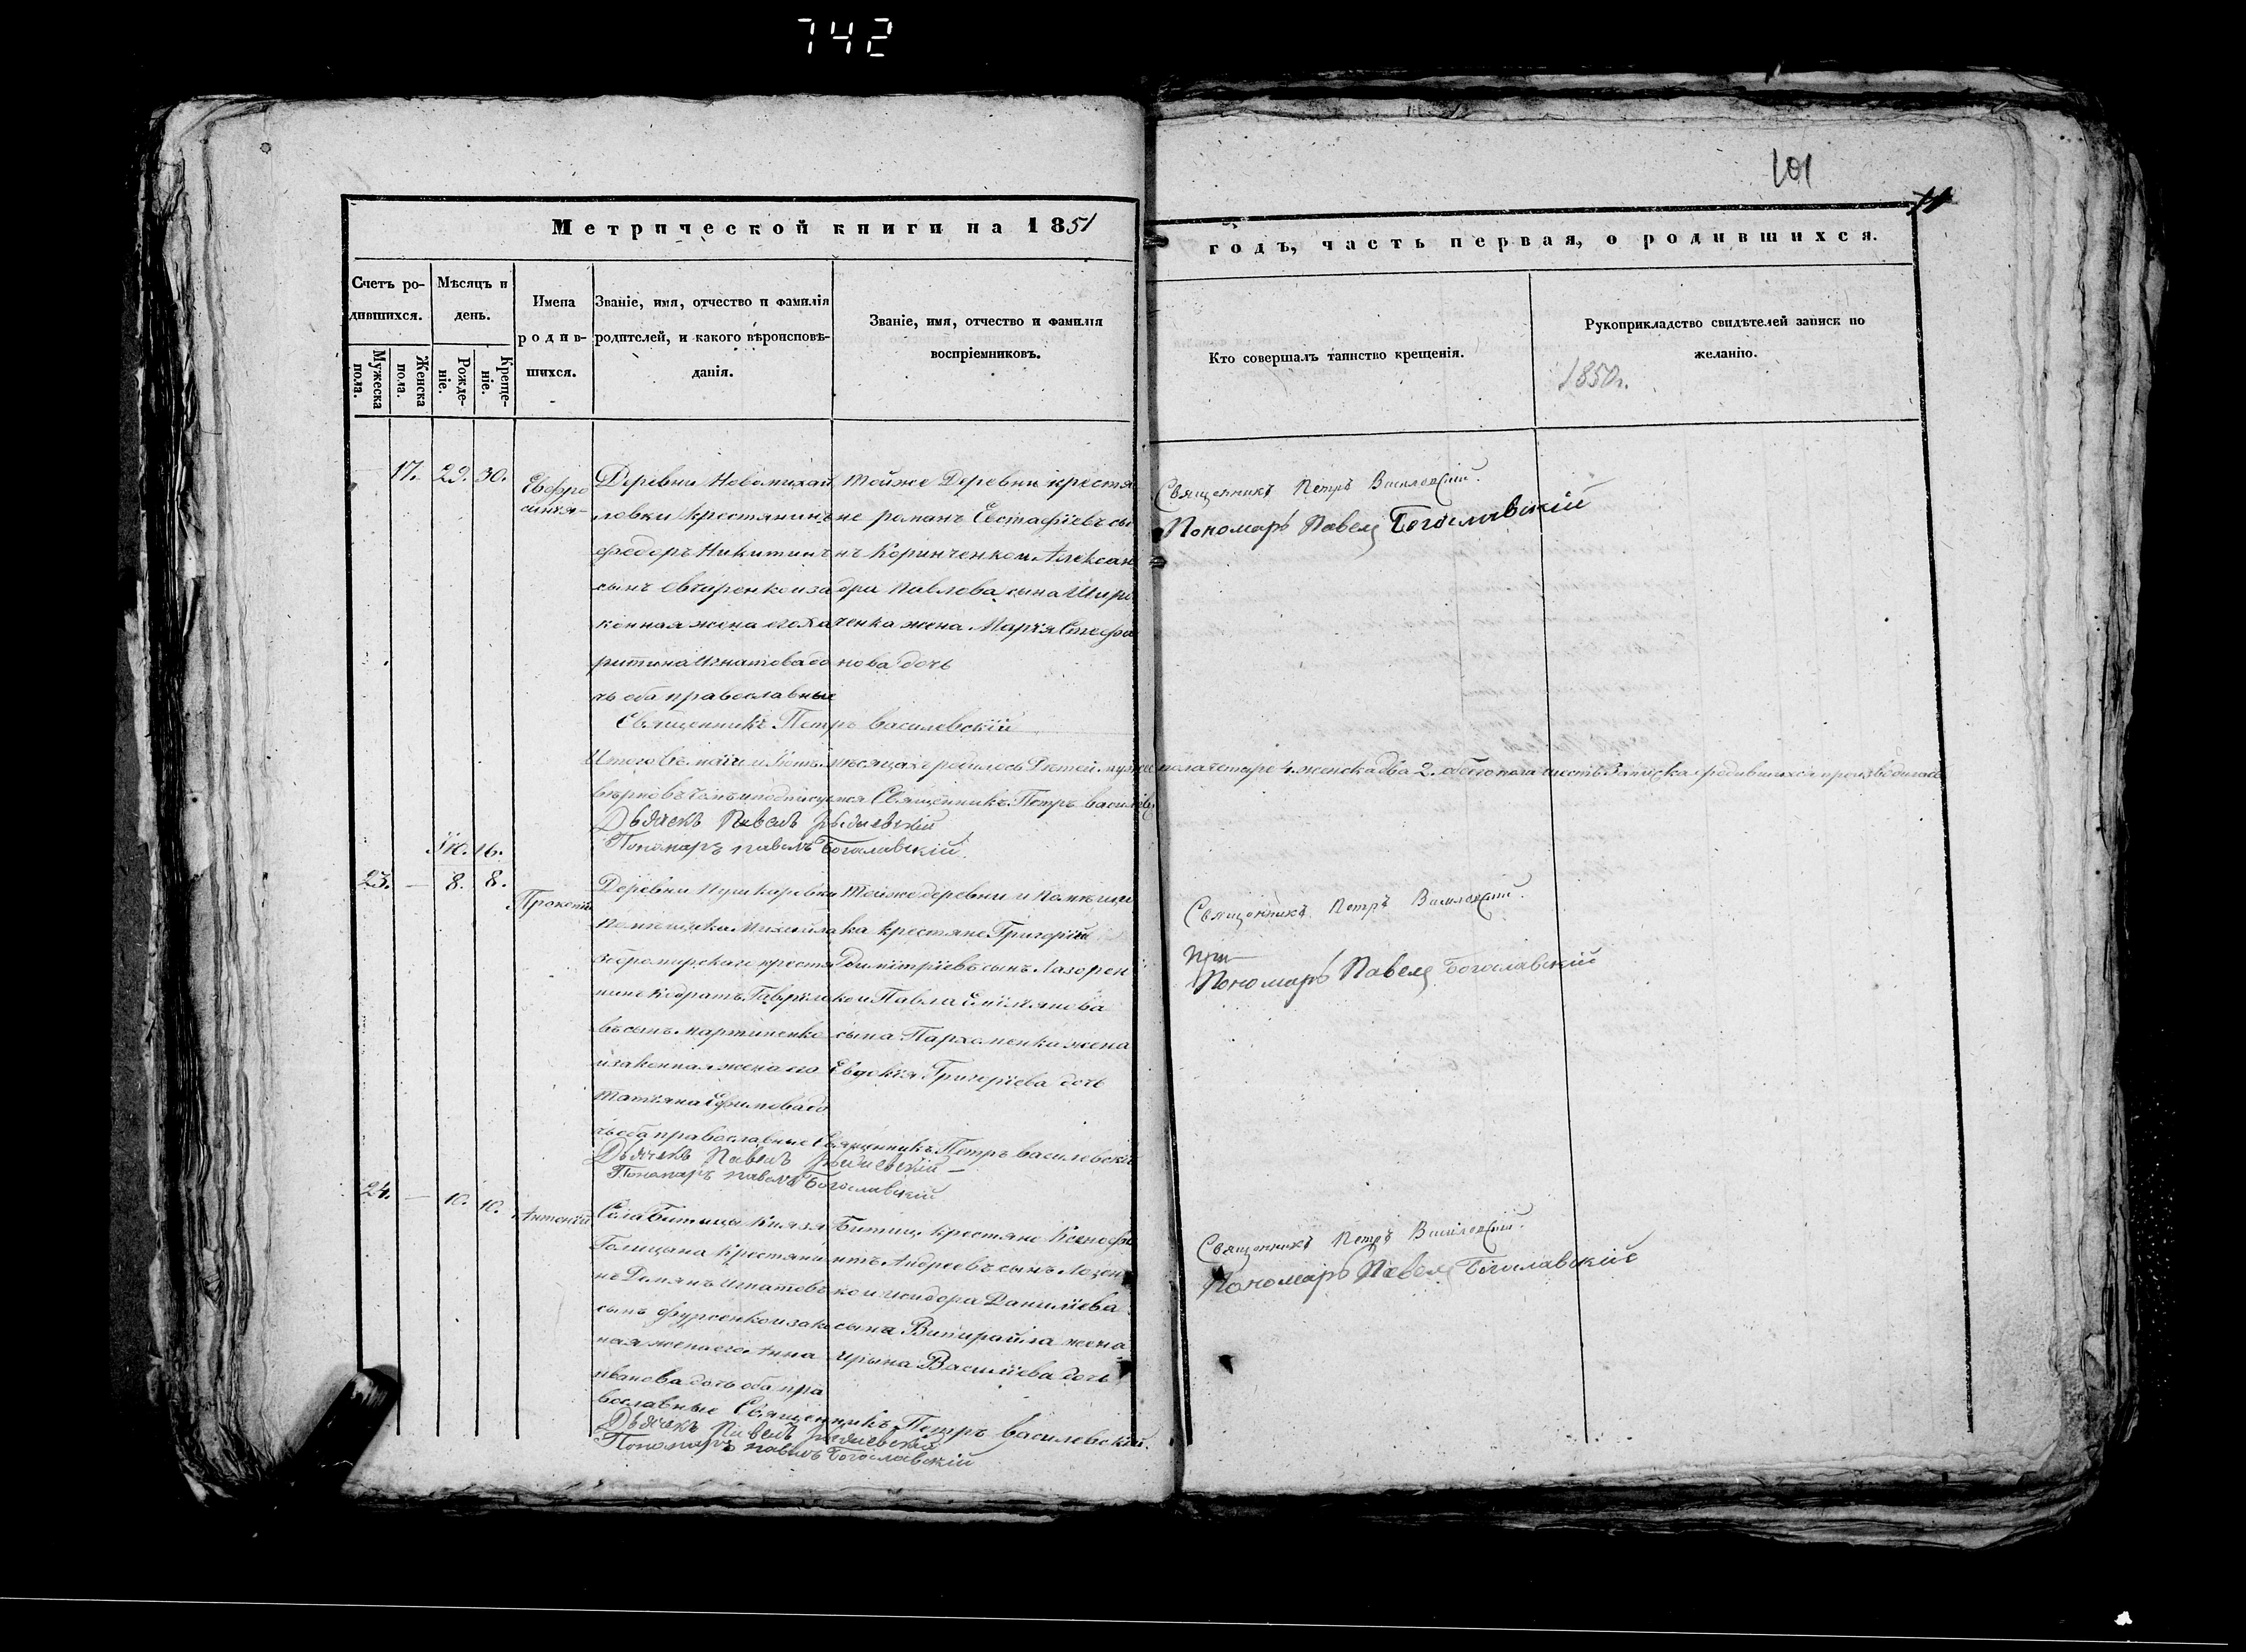 742
101
11
Метрической книги на 1851
годъ, часть первая, о родившихся.
Счетъ ро-
дившихся.
Мужеска
пола.
Женска
пола.
Мѣсяцъ и
день.
Рожде-
ніе.
Креще-
ніе.
Имена
родив-
шихся.
Званіе, имя, отчество и фамилія
родителей, и какого вѣроисповѣ-
данія.
Званіе, имя, отчество и фамилія
воспріемниковъ.
Кто совершалъ таинство крещенія.
Рукоприкладство свидѣтелей записк по
желанію.
1850г.
17. 29. 30.
Евфро
синія
Деревни Новомихай
ловки крестянинъ
Федоръ Никитинъ
сынъ Овчаренко иза
конная жена его Ха
ритина Игнатова до
чь оба православные
Тойже Деревни крестя
не романъ Евстафіевъ сы
нъ Коринченко и Алексан
дра Павлова сына Шира
ченка жена Марія Стефа
нова дочь
Священникъ Петръ Василевскій
Священникъ Петръ Василевскій.
Пономарь Павелъ Богославскій
Итого въ маіи и Іюнѣ мѣсяцахъ родилось Дѣтей мужес пола четыре 4. женска два 2. обоего пола шесть Записка родившихся производилась
вѣрно въ чемъ и подписуемся Священникъ Петръ Василев
Дьячекъ Павелъ
Пономаръ павелъ Богославскій.
Ію. 16.
23. — 8. 8.
Прокопій
Деревни Пушкаревки
Помѣщика Михайла
крестя
нинъ Кодратъ Гаврило
въ сынъ мартиненко
изаконная жена его
Татіяна Ефимова до
чь оба православные Священникъ Петръ Василевскій
Тойже деревни и Помѣщи
ка крестяне Григорій
Димитріевъ сынъ Лазорен
ко и Павла Емиліянова
сына Пархоменка жена
Евдокія Григоріева дочь
Дьячекъ Павелъ
Пономаръ павелъ Богославскій
Священникъ Петръ Василевскій.
при
Пономарь Павелъ Богославскій
24. — 10. 10.
Антоній
Села Битицы Князя
Голицына Крестяни
нъ Демянъ Игнатовъ
сынъ Фурсенко изако
ная жена его Анна
иванова дочь оба пра
вославные Священникъ Петръ Василевскій.
Битиц. Крестяне Ксенофо
нтъ Андреевъ сынъ Лозен
ко и исидора Даниліева
сына жена
ирына Василіева дочь
Дьячекъ Павелъ
Пономаръ павелъ Богославскій
Священникъ Петръ Василевскій.
Пономарь Павелъ Богославскій